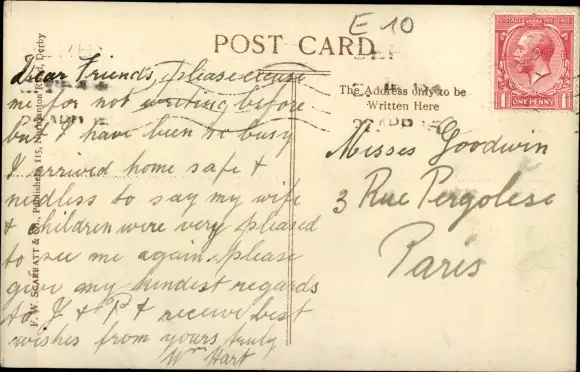 E 10
POST CARD
F. W. SCARRATT & Co., Publishers, 115, Normanton Road, Derby
POSTAGE REVENUE
1 ONE PENNY 1
The Address only to be
Written Here
Dear Friends, please excuse
me for not writing before
but I have been so busy
I arrived home safe &
needless to say my wife
& children were very pleased
to see me again. please
give my kindest regards
to J & P & receive best
wishes from yours truly
Wm Hart
Misses Goodwin
3 Rue Pergolese
Paris